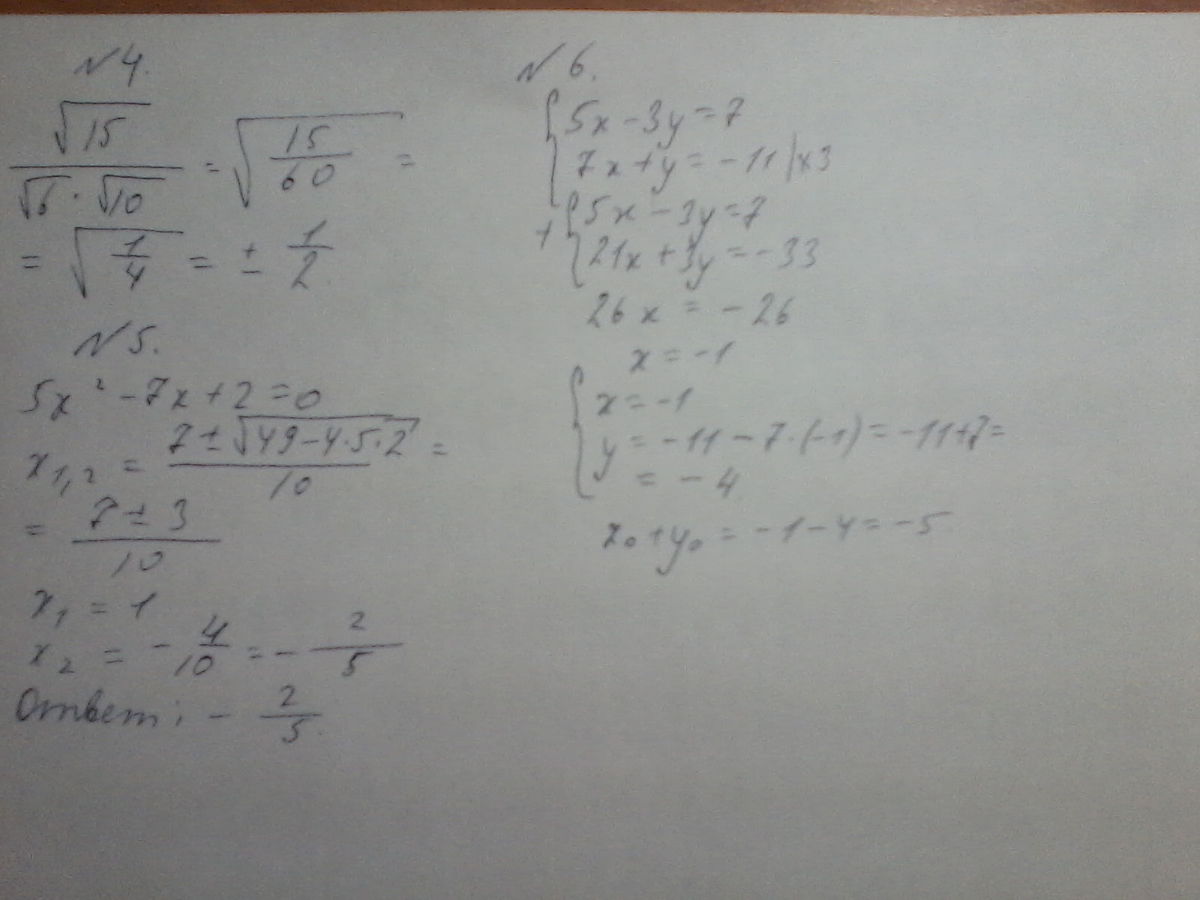 №4.
√15 / (√6 · √10) = √(15/60) =
= √(1/4) = ± 1/2
№5.
5x² - 7x + 2 = 0
x₁,₂ = (7 ± √(49 - 4·5·2)) / 10 =
= (7 ± 3) / 10
x₁ = 1
x₂ = - 4/10 = - 2/5
Ответ: - 2/5.
№6.
{ 5x - 3y = 7
{ 7x + y = -11 | ×3
+ { 5x - 3y = 7
{ 21x + 3y = -33
26x = -26
x = -1
{ x = -1
{ y = -11 - 7·(-1) = -11 + 7 =
= -4
x₀ + y₀ = -1 - 4 = -5